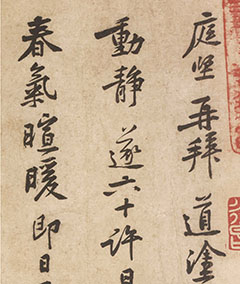 庭坚再拜道塗
動静遂六十許日
春氣暄暖即日